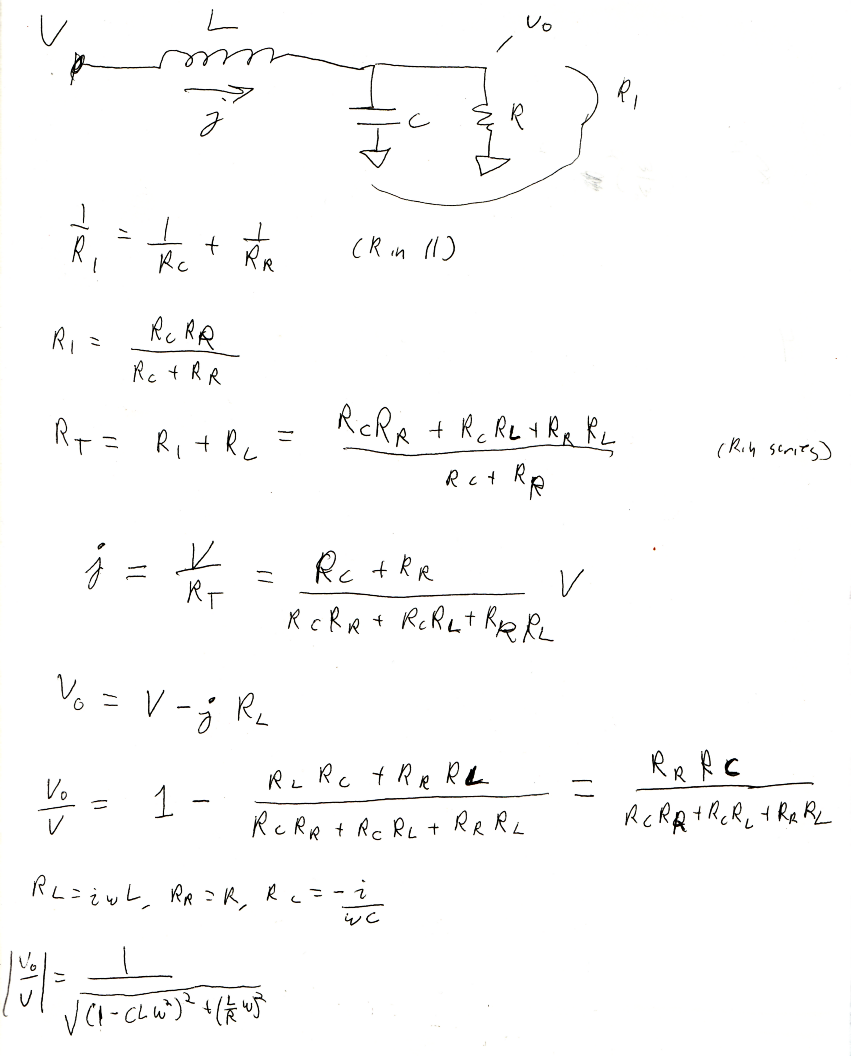 V L V₀
j C R R₁
1/R₁ = 1/R_C + 1/R_R (R in ||)
R₁ = R_C R_R / (R_C + R_R)
R_T = R₁ + R_L = (R_C R_R + R_C R_L + R_R R_L) / (R_C + R_R) (R in series)
j = V/R_T = (R_C + R_R) / (R_C R_R + R_C R_L + R_R R_L) V
V₀ = V - j R_L
V₀/V = 1 - (R_L R_C + R_R R_L) / (R_C R_R + R_C R_L + R_R R_L) = R_R R_C / (R_C R_R + R_C R_L + R_R R_L)
R_L = iωL, R_R = R, R_C = -i/ωC
|V₀/V| = 1 / √((1 - CLω²)² + (L/R ω)²)